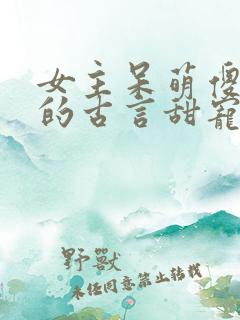 女主呆萌傻
的古言甜寵
野獸
未经同意禁止转载